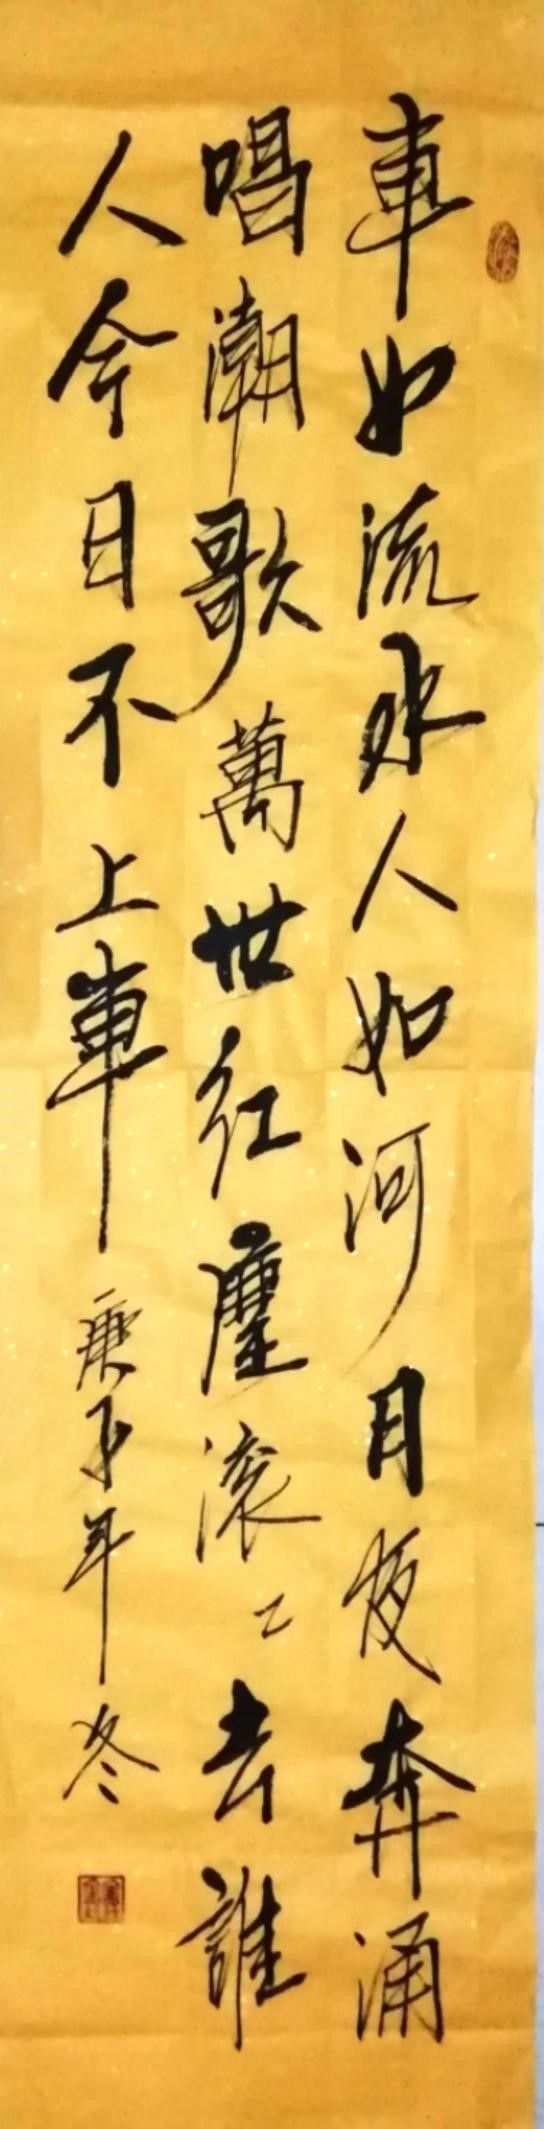 車如流水人如河日夜奔涌
唱潮歌萬世红塵滚〻去誰
人今日不上車
庚子年冬